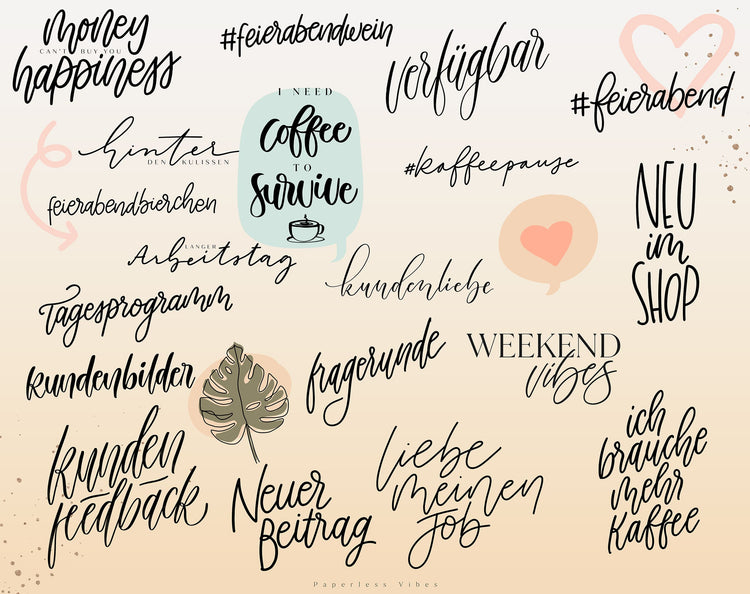 money
CAN'T BUY YOU
happiness
#feierabendwein
verfügbar
#feierabend
I NEED
coffee
TO
survive
hinter
DEN KULISSEN
#kaffeepause
feierabendbierchen
NEU
im
SHOP
LANGER
Arbeitstag
kundenliebe
Tagesprogramm
WEEKEND
vibes
kundenbilder
fragerunde
kunden
feedback
Neuer
Beitrag
liebe
meinen
Job
ich
brauche
mehr
Kaffee
Paperless Vibes